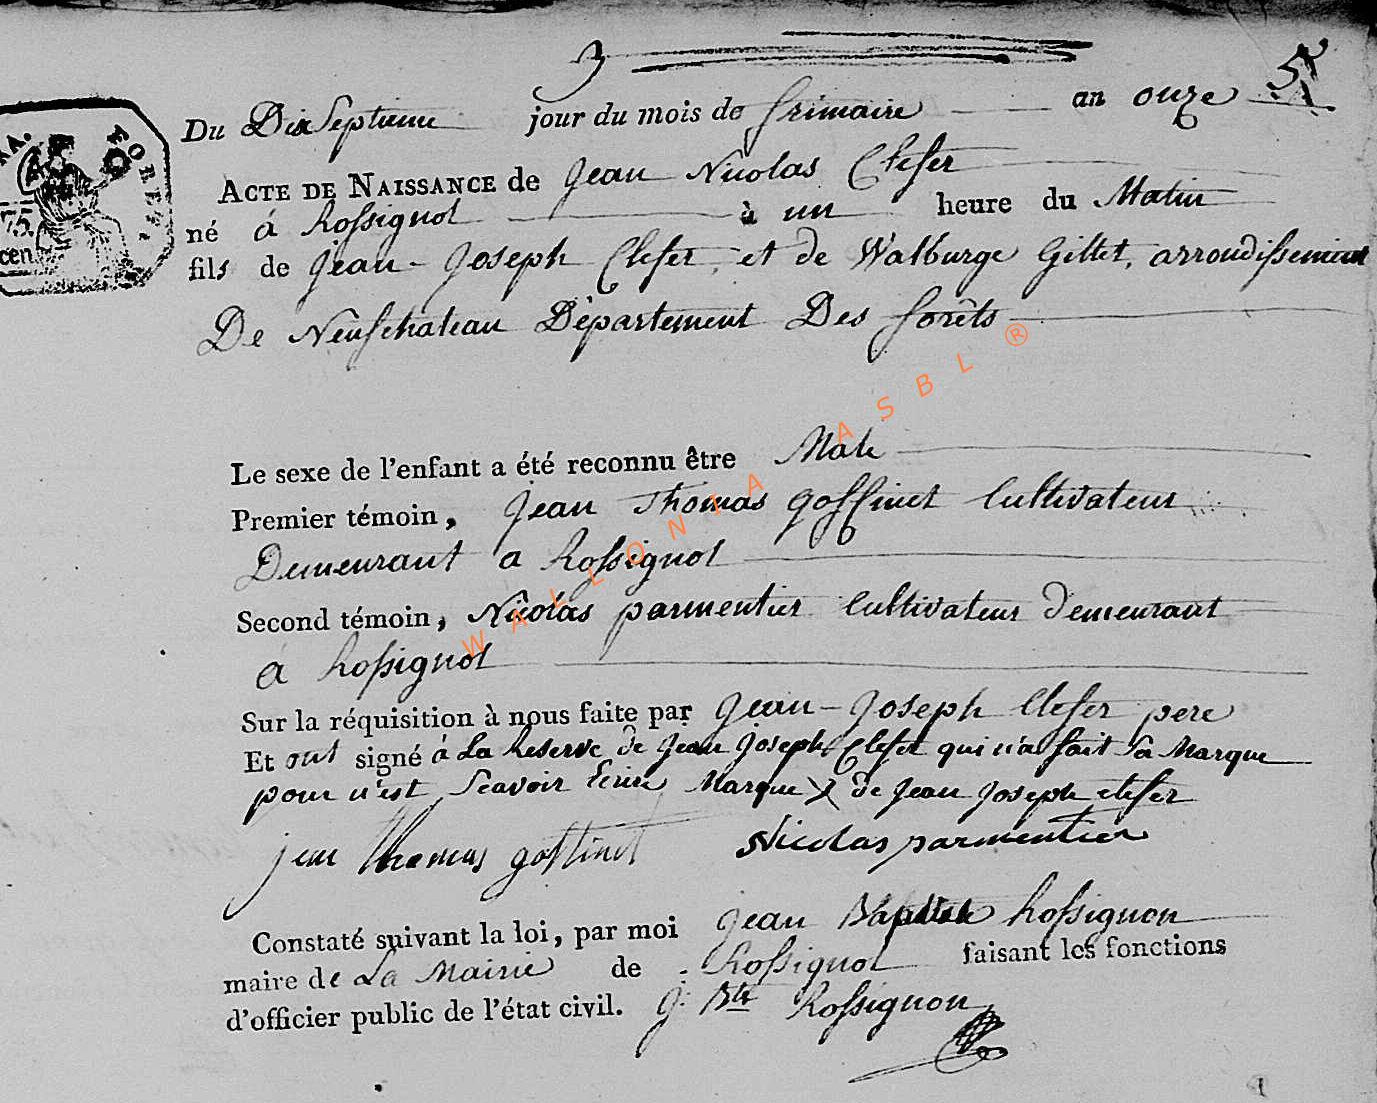 3
5
AA. FORETS
75. cen
Du DixSeptieme jour du mois de frimaire an onze
ACTE DE NAISSANCE de Jean Nicolas Clefer
né á Rossignol à un heure du Matin
fils de Jean-Joseph Clefer, et de Walburge Gillet, arrondissement
De Neufchateau Département Des forêts
Le sexe de l'enfant a été reconnu être Male
Premier témoin, Jean Thomas Goffinet Cultivateur
Demeurant a Rossignol
Second témoin, Nicolas parmentier Cultivateur Demeurant
á Rossignol
Sur la réquisition à nous faite par Jean-Joseph Clefer pere
Et ont signé á La Reserve de Jean Joseph Clefer qui n'a fait sa Marque
pour n'est Scavoir Ecrire Marque X de Jean Joseph clefer
jean thomas goffinet Nicolas parmentier
Constaté suivant la loi, par moi Jean Baptiste Rossignon
maire de La Mairie de Rossignol faisant les fonctions
d'officier public de l'état civil. J. Bte Rossignon
WALLONIA ASBL ®